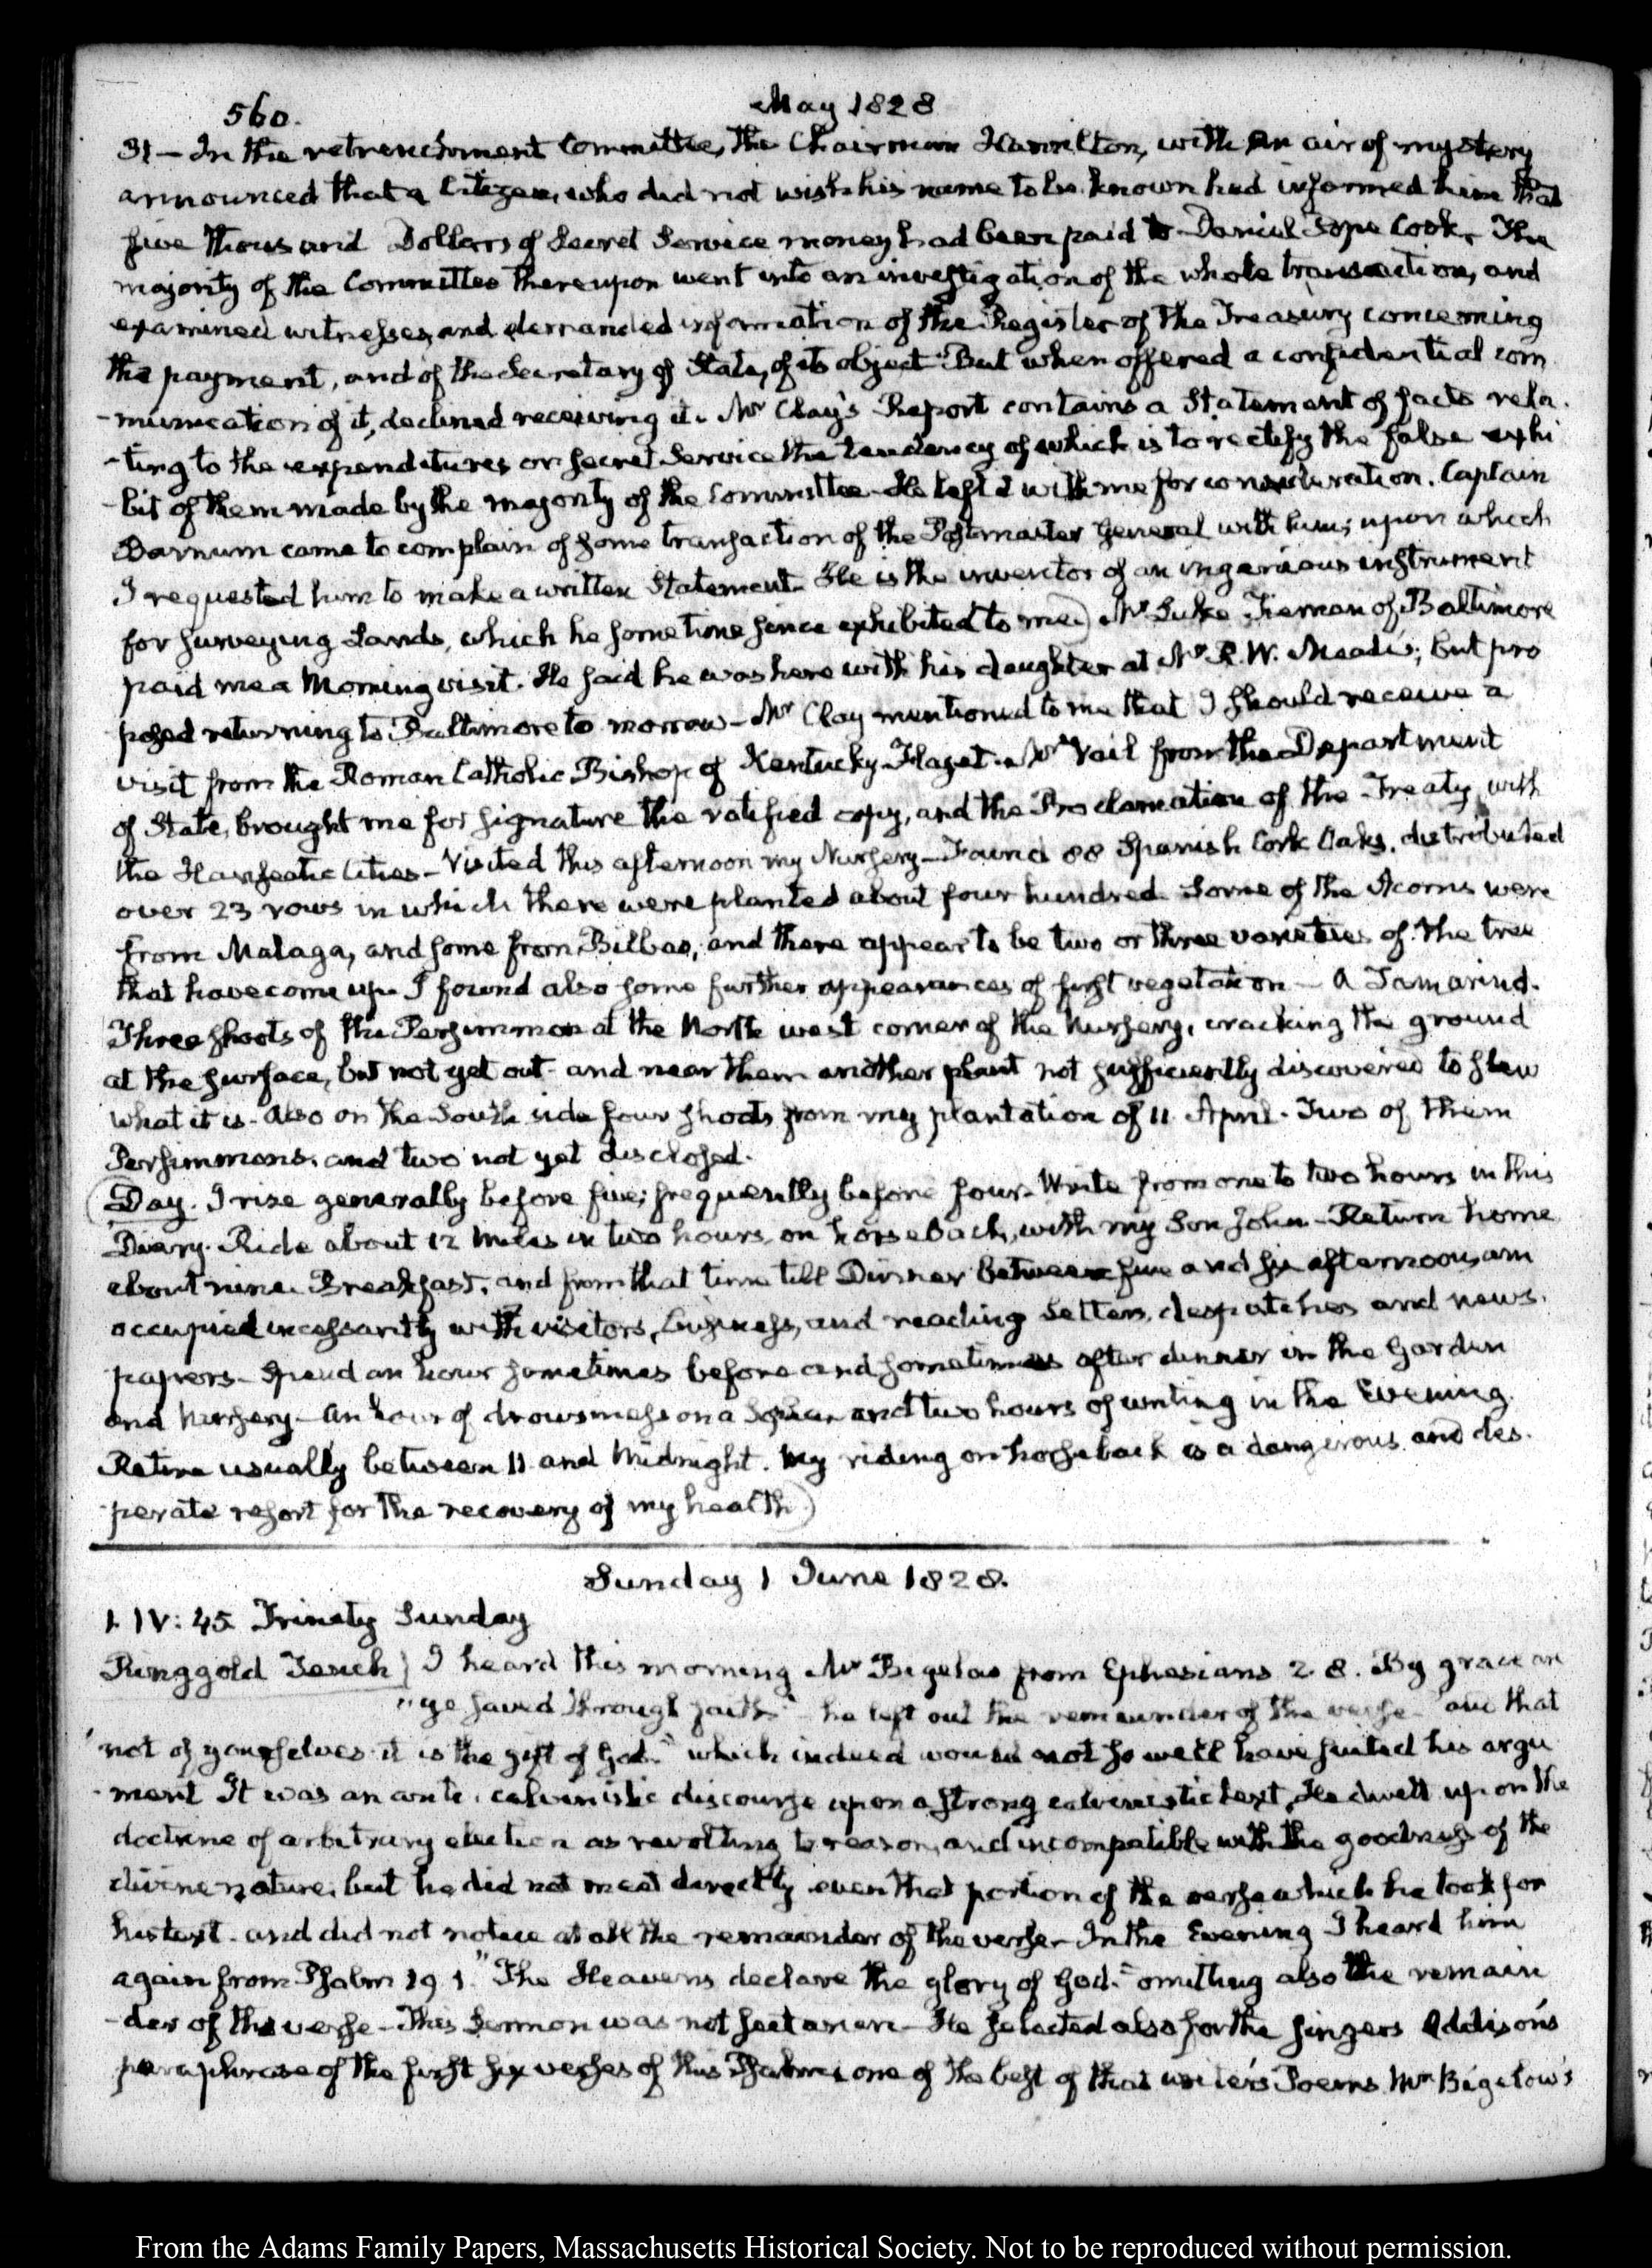 560.
May 1828
31 — In the retrenchment Committee, the Chairman Hamilton, with an air of mystery
announced that a Citizen, who did not wish his name to be known had informed him that
five thousand Dollars of Secret Service money had been paid to Daniel Pope Cook. The
majority of the Committee thereupon went into an investigation of the whole transaction, and
examined witnesses, and demanded information of the Register of the Treasury concerning
the payment, and of the Secretary of State, of its object. But when offered a confidential com
-munication of it, declined receiving it. Mr Clay's Report contains a Statement of facts rela-
-ting to the expenditures on secret Service the tendency of which is to rectify the false exhi
-bit of them made by the majority of the Committee. He left it with me for consideration. Captain
Barnum came to complain of some transaction of the Postmaster General with him; upon which
I requested him to make a written Statement. He is the inventor of an ingenious instrument
for surveying Lands, which he sometime since exhibited to me) Mr Luke Tiernan of Baltimore
paid me a Morning visit. He said he was here with his daughter at Mr R. W. Meade's; but pro
posed returning to Baltimore to morrow — Mr Clay mentioned to me that I should receive a
visit from the Roman Catholic Bishop of Kentucky Flaget. Mr Vail from the Department
of State, brought me for signature the ratified copy, and the Proclamation of the Treaty with
the Hanseatic Cities — Visited this afternoon my Nursery — Found 88 Spanish Cork Oaks, distributed
over 23 rows in which there were planted about four hundred. Some of the Acorns were
from Malaga, and some from Bilbao, and there appear to be two or three varieties of the tree
that have come up. I found also some further appearances of first vegetation — A Tamarind.
Three shoots of the Persimmon at the North west corner of the Nursery, cracking the ground
at the surface, but not yet out — and near them another plant not sufficiently discovered to shew
what it is. Also on the South side four shoots from my plantation of 11 April. Two of them
Persimmons, and two not yet disclosed.
(Day. I rise generally before five; frequently before four. Write from one to two hours in this
Diary. Ride about 12 miles in two hours, on horseback, with my Son John — Return home
about nine. Breakfast, and from that time till Dinner between five and six afternoon, am
occupied incessantly with visitors, business, and reading Letters, despatches and news-
papers — Spend an hour sometimes before and sometimes after dinner in the Garden
and Nursery — An hour of drowsiness on a Sopha and two hours of writing in the Evening.
Retire usually between 11 and Midnight. My riding on horseback is a dangerous and des-
-perate resort for the recovery of my health)
Sunday 1 June 1828.
1. IV: 45 Trinity Sunday
Ringgold Tench) I heard this morning Mr Bigelow from Ephesians 2. 8. By grace are
"ye saved through faith" — he left out the remainder of the verse — "and that
not of yourselves it is the gift of God." which indeed would not so well have suited his argu
-ment It was an anti-calvinistic discourse upon a strong calvinistic text. He dwelt upon the
doctrine of arbitrary election as revolting to reason, and incompatible with the goodness of the
divine nature, but he did not meet directly even that portion of the verse which he took for
his text — and did not notice at all the remainder of the verse. In the Evening I heard him
again from Psalm 19 1. "The Heavens declare the glory of God." omitting also the remain
-der of the verse — This Sermon was not sectarian — He selected also for the singers Addison's
paraphrase of the first six verses of this Psalm, one of the best of that writer's Poems. Mr Bigelow's
From the Adams Family Papers, Massachusetts Historical Society. Not to be reproduced without permission.